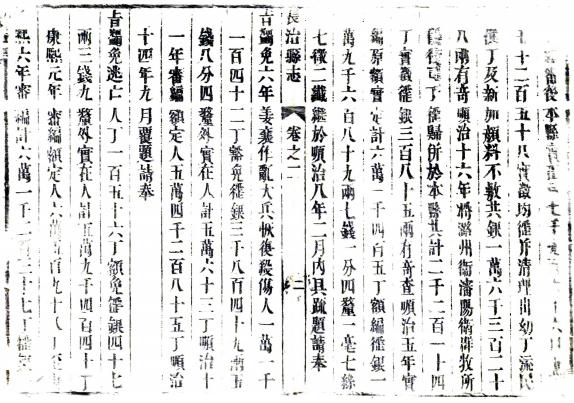 後本縣
十二百五十八實徵均徭并清理出幼丁流民
僕丁及新加顏料不敷共銀一萬六千三百二十
八兩有奇順治十六年將潞州衛瀋陽衛群牧所
後丁徭歸併於本縣共計二千二百一十四
丁實徵徭銀三百八十五兩有奇查順治五年實
編原額實定計六萬二千四百五丁額編徭銀一
萬九千六百八十九兩七錢一分四釐一毫七絲
七微二纖於順治八年二月內具疏題請奉
長治縣志 卷之二 二
旨蠲免六年姜襄作亂大兵恢復殺傷人一萬一千
一百四十二丁豁免徭銀三千八百四十九兩五
錢八分四釐外實在人計五萬六十三丁順治十
一年審編額定人五萬四千二百八十五丁順治
十四年九月覆題請奉
旨蠲免逃亡人丁一百五十六丁額免徭銀四十七
兩三錢九釐外實在人計五萬九千四百四十丁
康熙元年審編額定人六萬五百九十八丁至康
熙六年審編計六萬一千二十七丁徭銀